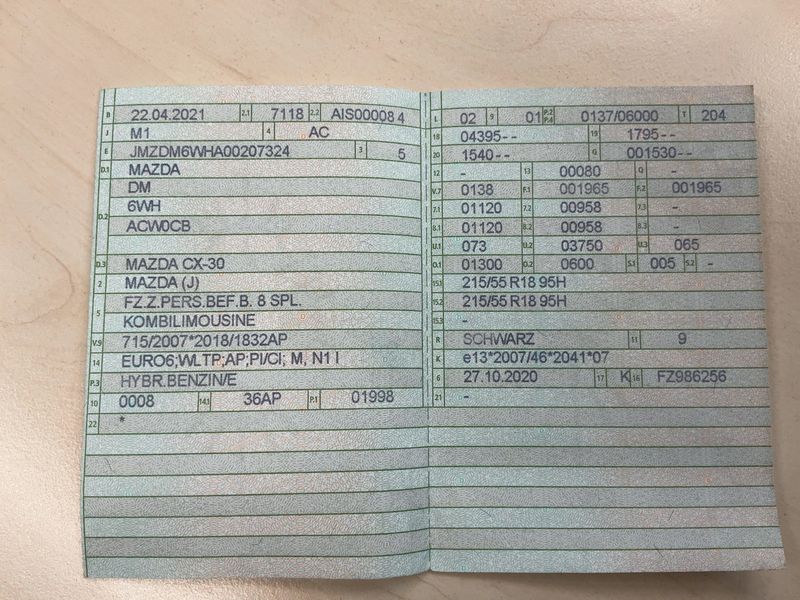 B 22.04.2021 2.1 7118 2.2 AIS000084
J M1 4 AC
E JMZDM6WHA00207324 3 5
D.1 MAZDA
DM
D.2 6WH
ACW0CB
D.3 MAZDA CX-30
2 MAZDA (J)
5 FZ.Z.PERS.BEF.B. 8 SPL.
KOMBILIMOUSINE
V.9 715/2007*2018/1832AP
14 EURO6;WLTP;AP;PI/CI; M, N1 I
P.3 HYBR.BENZIN/E
10 0008 14.1 36AP P.1 01998
22 *
L 02 9 01 P.2 P.4 0137/06000 T 204
18 04395-- 19 1795--
20 1540-- G 001530--
12 - 13 00080 Q -
V.7 0138 F.1 001965 F.2 001965
7.1 01120 7.2 00958 7.3 -
8.1 01120 8.2 00958 8.3 -
U.1 073 U.2 03750 U.3 065
O.1 01300 O.2 0600 S.1 005 S.2 -
15.1 215/55 R18 95H
15.2 215/55 R18 95H
15.3 -
R SCHWARZ 11 9
K e13*2007/46*2041*07
6 27.10.2020 17 K 16 FZ986256
21 -